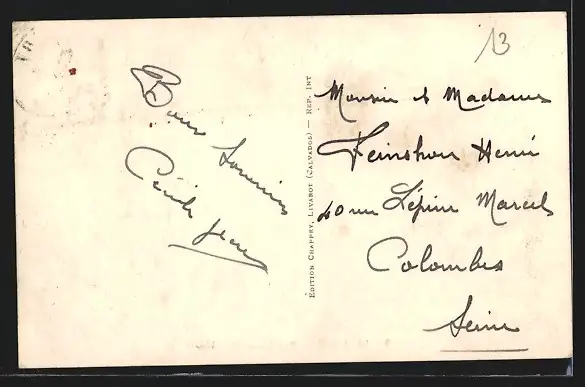 13
Bons Souvenirs
Cécile
Monsieur & Madame
Henri
40 rue Lépine Marcel
Colombes
Seine
EDITION CHAPPEY, LIVAROT (CALVADOS) — REP. INT